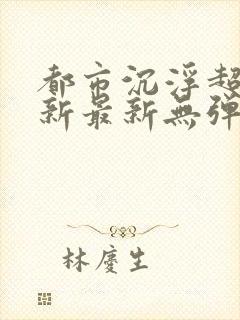 都市沉浮超
新最新無彈
林慶生